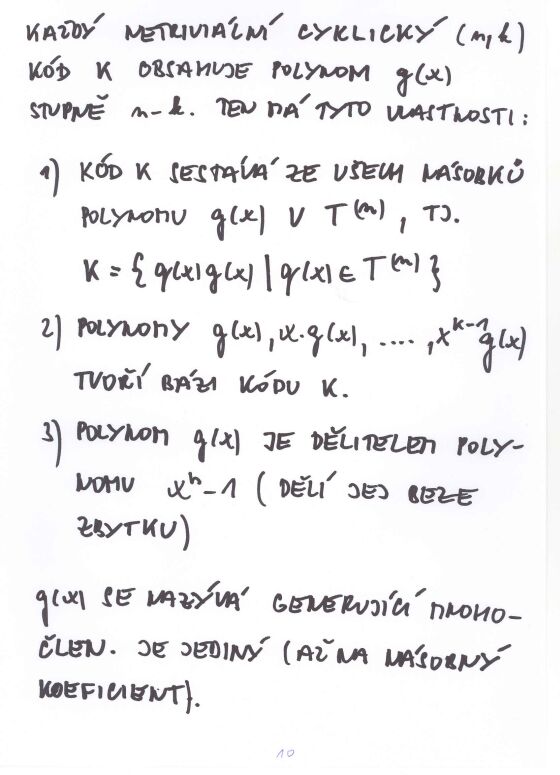 KAŽDÝ NETRIVIÁLNÍ CYKLICKÝ (n,k)
KÓD K OBSAHUJE POLYNOM g(x)
STUPNĚ n-k. TEN MÁ TYTO VLASTNOSTI:
1) KÓD K SESTÁVÁ ZE VŠECH NÁSOBKŮ
POLYNOMU g(x) V T^(n), TJ.
K = { q(x)g(x) | q(x) ∈ T^(n) }
2) POLYNOMY g(x), x·g(x), ...., x^k-1 g(x)
TVOŘÍ BÁZI KÓDU K.
3) POLYNOM g(x) JE DĚLITELEM POLY-
NOMU x^n-1 (DĚLÍ JEJ BEZE
ZBYTKU)
g(x) SE NAZÝVÁ GENERUJÍCÍ MNOHO-
ČLEN. JE JEDINÝ (AŽ NA NÁSOBNÝ
KOEFICIENT).
10